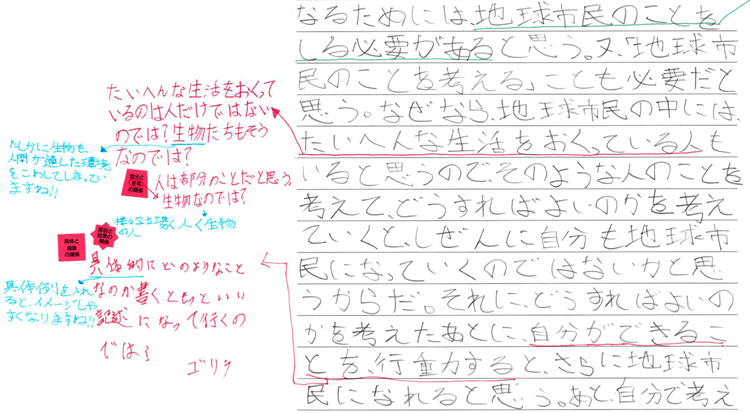 なるためには、地球市民のことを
しる必要があると思う。又、「地球市
民のことを考える」ことも必要だと
思う。なぜなら、地球市民の中には、
たいへんな生活をおくっている人も
いると思うのでそのような人のことを
考えて、どうすればよいのかを考え
ていくと、しぜんに自分も地球市
民になっていくのではないかと思
うからだ。それに、どうすればよいの
かを考えたあとに、自分ができるこ
とを、行動すると、さらに地球市
民になれると思う。あと、自分で考え
たいへんな生活をおくって
いるのは人だけではない
のでは?生物たちもそう
なのでは?
たしかに生物も、
人間が過した環境
をこわしてしまってい
ますね!!
部分と
全体
の関係
人は部分のことだと思う。
生物なのでは?
様々な立場
の人
く人く生物
具体と
抽象
の関係
原因と
結果の
関係
具体的にどのようなこと
なのか書くともっといい
記述になって行くの
では?
ゴリラ
具体例を入れ
ると、イメージしや
すくなりますね!!